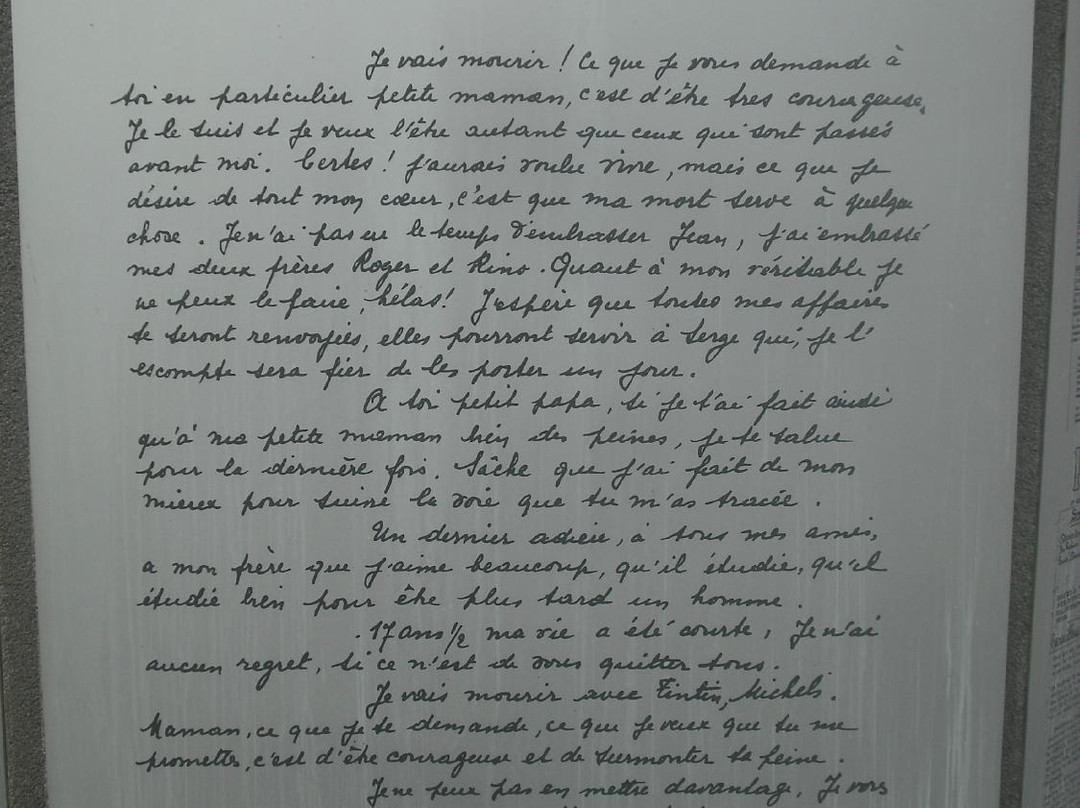 Je vais mourir ! Ce que je vous demande à
toi en particulier petite maman, c'est d'être tres courageuse.
Je le suis et je veux l'être autant que ceux qui sont passés
avant moi. Certes ! j'aurais voulu vivre, mais ce que je
désire de tout mon cœur, c'est que ma mort serve à quelque
chose. Je n'ai pas eu le temps d'embrasser Jean, j'ai embrassé
mes deux frères Roger et Rino. Quant à mon véritable je
ne peux le faire, hélas! J'espère que toutes mes affaires
te seront renvoyées, elles pourront servir à Serge qui, je l'
escompte sera fier de les porter un jour.
A toi petit papa, si je t'ai fait ainsi
qu'à ma petite maman bien des peines, je te salue
pour la dernière fois. Sâche que j'ai fait de mon
mieux pour suivre la voie que tu m'as tracée.
Un dernier adieu, à tous mes amis,
a mon frère que j'aime beaucoup, qu'il étudie, qu'il
étudie bien pour être plus tard un homme.
17 ans ½ ma vie a été courte, Je n'ai
aucun regret, si ce n'est de vous quitter tous.
Je vais mourir avec Tintin, Michels.
Maman, ce que je te demande, ce que je veux que tu me
promettes, c'est d'être courageuse et de surmonter ta peine.
Je ne peux pas en mettre davantage. Je vous